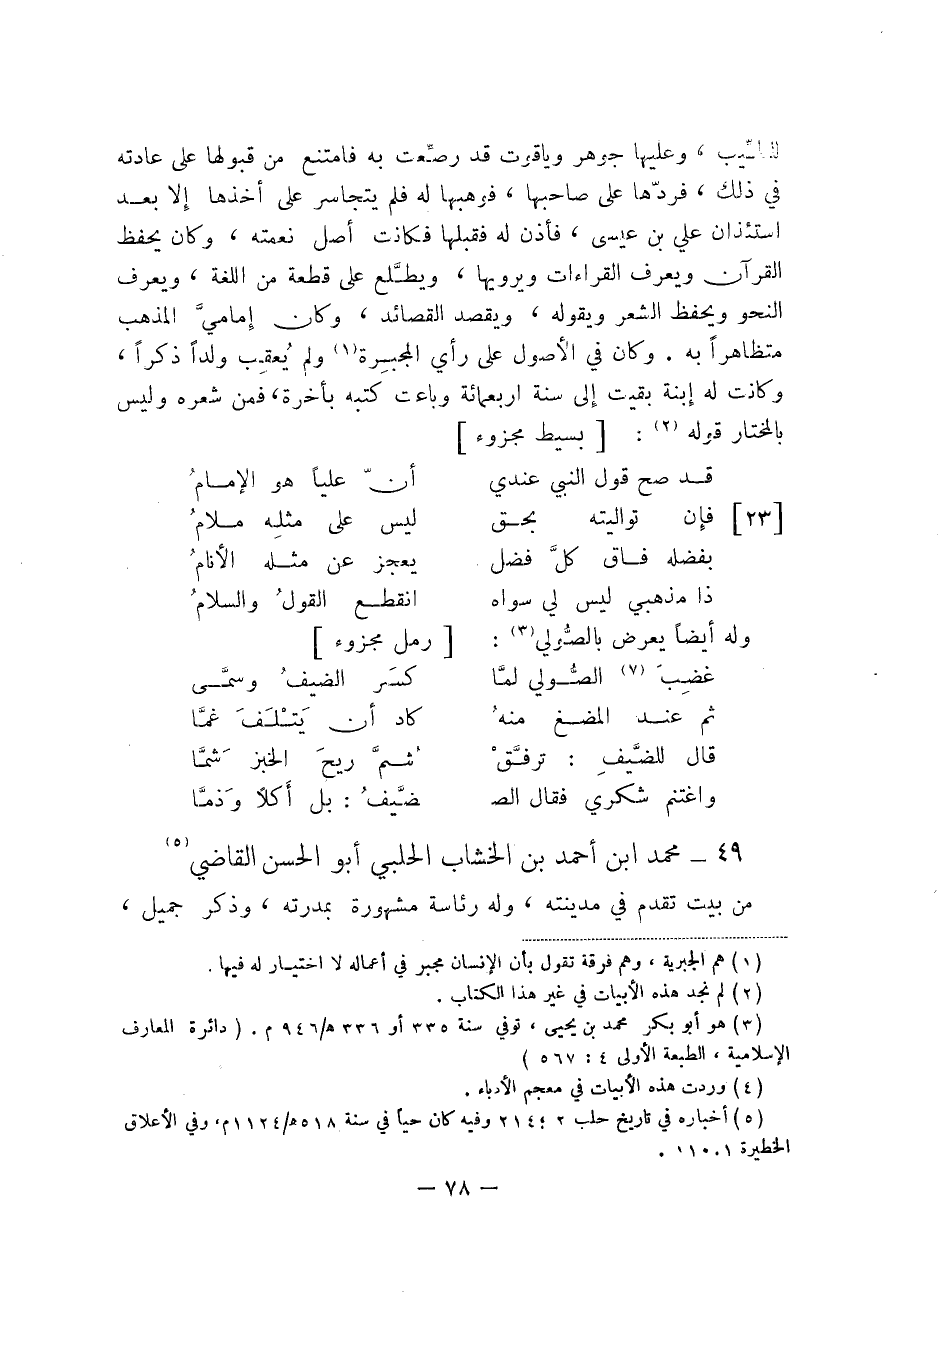 وعليها جوهر وياقوت قد رصّعت به فامتنع من قبولها على عادته
في ذلك ، فردّها على صاحبها ، فوهبها له فلم يتجاسر على أخذها إلا بعد
استئذان علي بن عيسى ، فأذن له فقبلها فكانت أصل نعمته ، وكان يحفظ
القرآن ويعرف القراءات ويرويها ، ويطَّلع على قطعة من اللغة ، ويعرف
النحو ويحفظ الشعر ويقوله ، ويقصد القصائد ، وكان إماميَّ المذهب
متظاهراً به . وكان في الأصول على رأي المجبِرة(١) ولم يُعقِب ولداً ذكراً ،
وكانت له إبنة بقيت إلى سنة اربعمائة وباعت كتبه بأخرة، فمن شعره وليس
بالمختار قوله (٢) : [ بسيط مجزوء ]
قد صح قول النبي عندي أنّ علياً هو الإمامُ
[٢٣] فإن تواليته بحق ليس على مثلِه ملامُ
بفضله فاق كلَّ فضل يعجز عن مثله الأنامُ
ذا مذهبي ليس لي سواه انقطع القولُ والسلامُ
وله أيضاً يعرض بالصُّولي(٣) : [ رمل مجزوء ]
غضِبَ (٧) الصُّولي لمَّا كسَر الضيفُ وسمَّى
ثم عند المضغ منهُ كاد أن يَتْلَفَ غمَّا
قال للضَّيفِ : ترفَّقْ ثُمَّ ريحَ الخبز شَمَّا
واغتنم شكري فقال الض ضَّيفُ : بل أكلاً وَذمَّا
٤٩ ــ محمد ابن أحمد بن الخشاب الحلبي أبو الحسن القاضي(٥)
من بيت تقدم في مدينته ، وله رئاسة مشهورة بمدرته ، وذكر جميل ،
(١) هم الجبرية ، وهم فرقة تقول بأن الإنسان مجبر في أعماله لا اختيار له فيها .
(٢) لم نجد هذه الأبيات في غير هذا الكتاب .
(٣) هو أبو بكر محمد بن يحيى ، توفي سنة ٣٣٥ أو ٣٣٦ ه/٩٤٦ م . ( دائرة المعارف
الإسلامية ، الطبعة الأولى ٤ : ٥٦٧ )
(٤) وردت هذه الأبيات في معجم الأدباء .
(٥) أخباره في تاريخ حلب ٢ ؛ ٢١٤ وفيه كان حياً في سنة ٥١٨ ه/١١٢٤م، وفي الأعلاق
الخطيرة ١.١١٠ .
— ٧٨ —